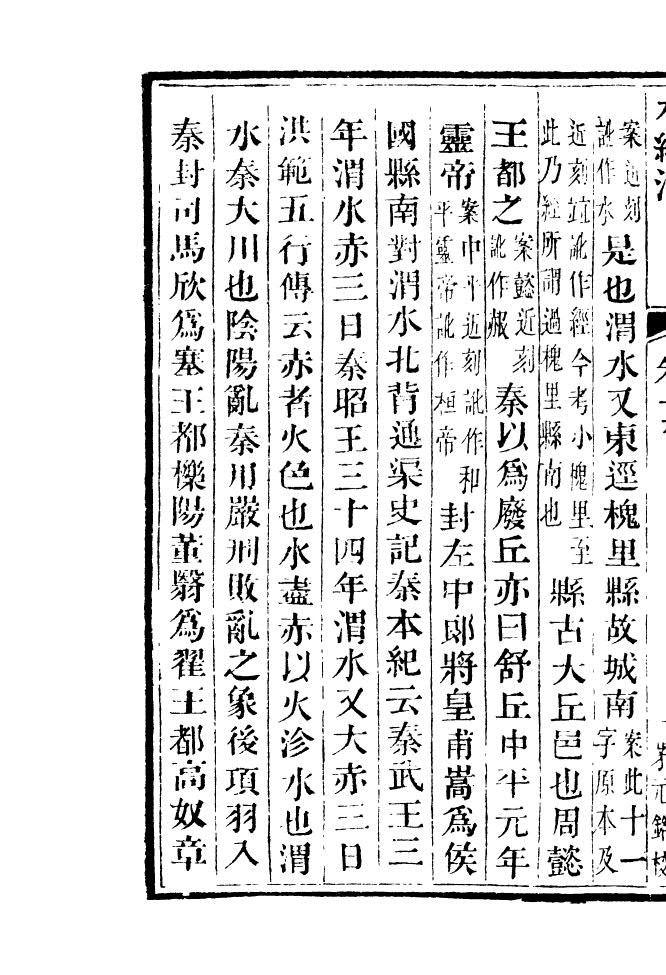 水經注
案近刻訛作水是也渭水又東逕槐里縣故城南案此十一字原本及
近刻竝訛作經今考小槐里至此乃經所謂過槐里縣南也縣古大丘邑也周懿
王都之案懿近刻訛作赧秦以爲廢丘亦曰舒丘中平元年
靈帝案中平近刻訛作和平靈帝訛作桓帝封左中郎將皇甫嵩爲侯
國縣南對渭水北背通渠史記秦本紀云秦武王三
年渭水赤三日秦昭王三十四年渭水又大赤三日
洪範五行傳云赤者火色也水盡赤以火沴水也渭
水秦大川也陰陽亂秦用嚴刑敗亂之象後項羽入
秦封司馬欣爲塞王都櫟陽董翳爲翟王都高奴章